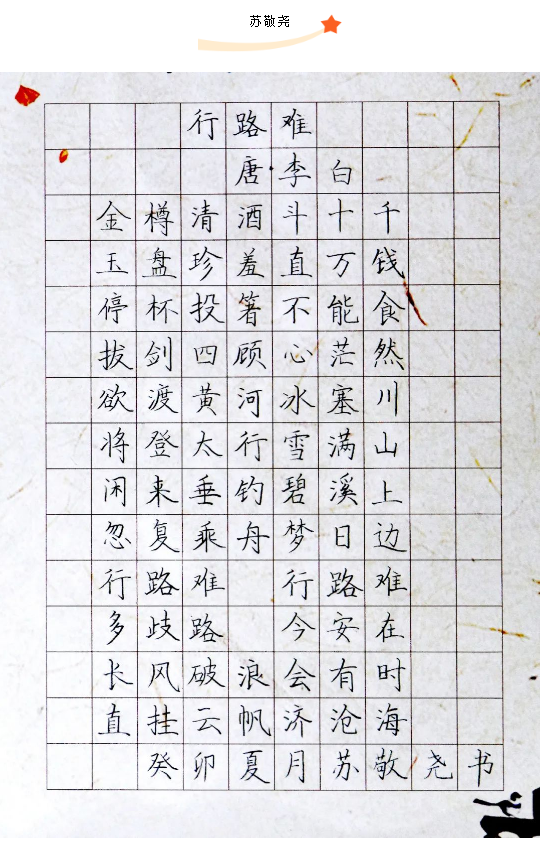 苏敬尧
行路难
唐·李白
金樽清酒斗十千
玉盘珍羞直万钱
停杯投箸不能食
拔剑四顾心茫然
欲渡黄河冰塞川
将登太行雪满山
闲来垂钓碧溪上
忽复乘舟梦日边
行路难 行路难
多歧路 今安在
长风破浪会有时
直挂云帆济沧海
癸卯夏月苏敬尧书